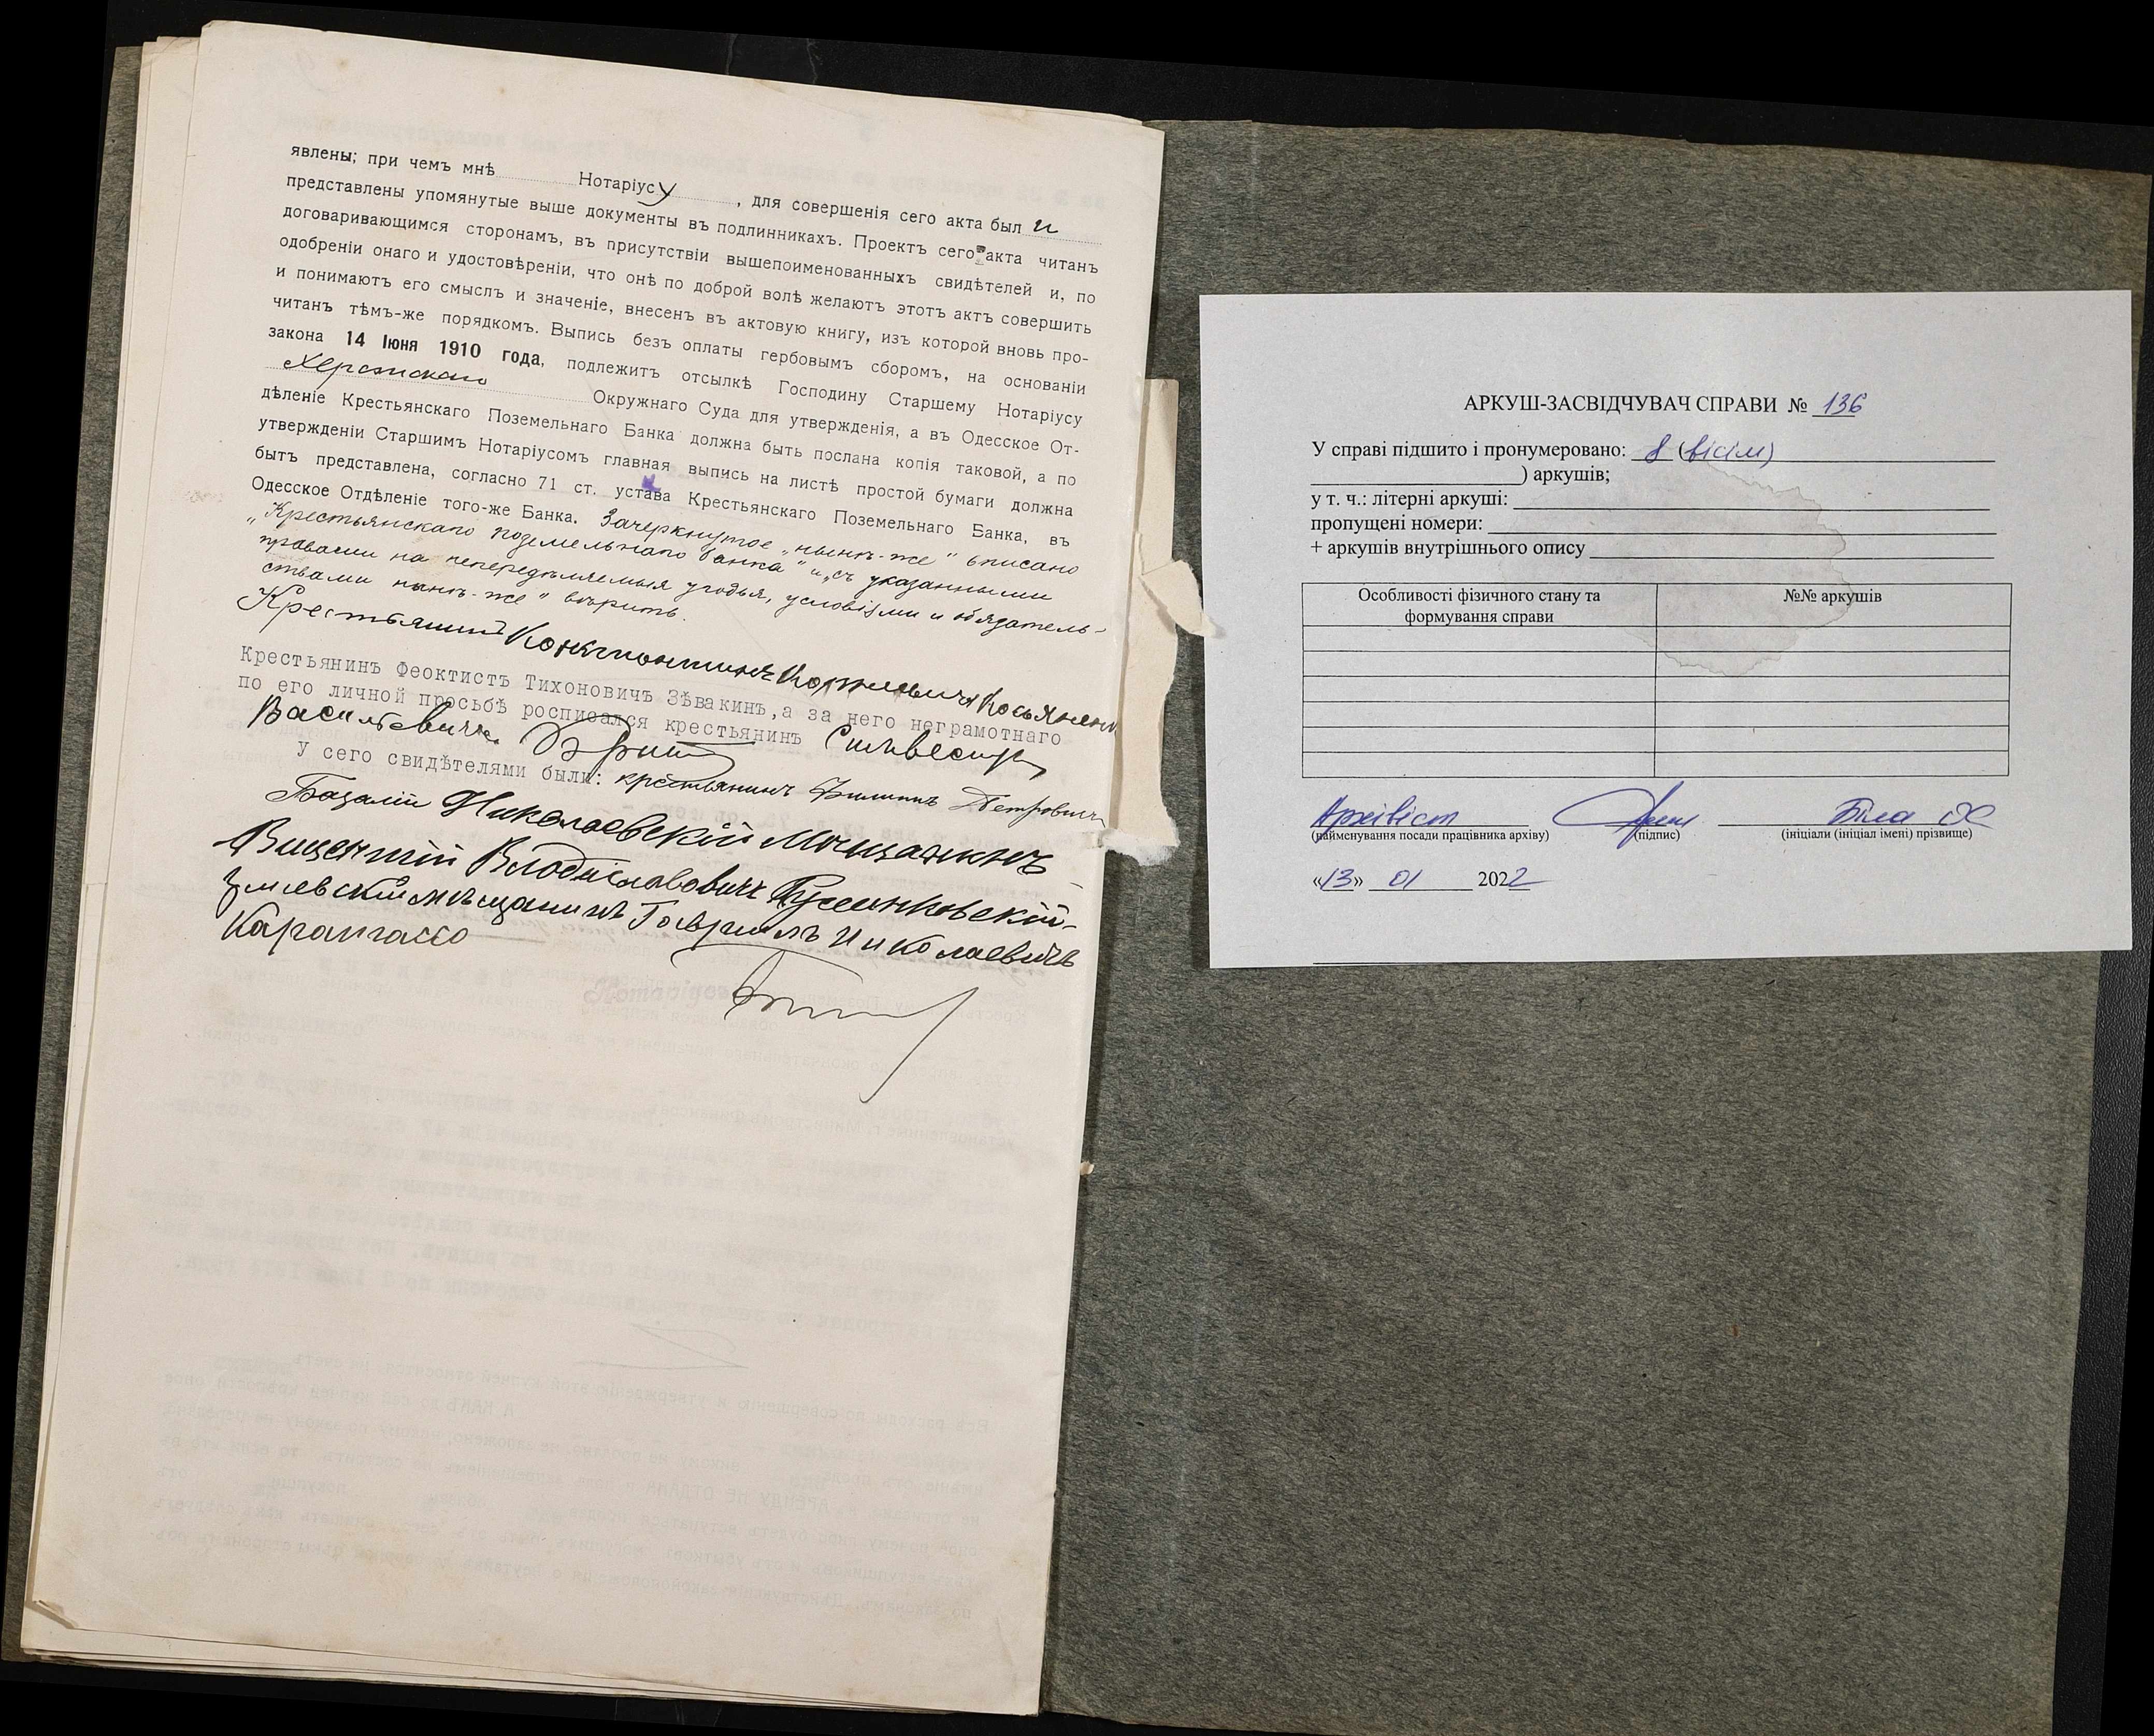 явлены; при чемъ мнѣ Нотаріусу, для совершенія сего акта был и
представлены упомянутые выше документы въ подлинникахъ. Проектъ сего акта читанъ
договаривающимся сторонамъ, въ присутствіи вышепоименованныхъ свидѣтелей и, по
одобреніи онаго и удостовѣреніи, что онѣ по доброй волѣ желаютъ этотъ актъ совершить
и понимаютъ его смыслъ и значеніе, внесенъ въ актовую книгу, изъ которой вновь про-
читанъ тѣмъ-же порядкомъ. Выпись безъ оплаты гербовымъ сборомъ, на основаніи
закона 14 Іюня 1910 года, подлежитъ отсылкѣ Господину Старшему Нотаріусу
Херсонскаго Окружнаго Суда для утвержденія, а въ Одесское От-
дѣленіе Крестьянскаго Поземельнаго Банка должна быть послана копія таковой, а по
утвержденіи Старшимъ Нотаріусомъ главная выпись на листѣ простой бумаги должна
быть представлена, согласно 71 ст. устава Крестьянскаго Поземельнаго Банка, въ
Одесское Отдѣленіе того-же Банка. Зачеркнутое „нынѣ-же" вписано
„Крестьянскаго поземельнаго банка" и „съ указанными
правами на непередѣляемыя угодья, условіями и обязатель-
ствами нынѣ-же" вѣрить.
Крестьянинъ Константинъ Косьяненко
Крестьянинъ Феоктистъ Тихоновичъ Зѣвакинъ, а за него неграмотнаго
по его личной просьбѣ росписался крестьянинъ Сильвестръ
Васильевичъ
У сего свидѣтелями были: крестьянинъ Филиппъ Петровичъ
Базалій Николаевскій Мѣщанинъ
Вицентій Владиславовичъ
Змиевскій мѣщанинъ Гавріилъ Николаевичъ
Карангассо
АРКУШ-ЗАСВІДЧУВАЧ СПРАВИ № 136
У справі підшито і пронумеровано: 8 (вісім)
) аркушів;
у т. ч.: літерні аркуші:
пропущені номери:
+ аркушів внутрішнього опису
Особливості фізичного стану та №№ аркушів
формування справи
Архівіст Біла
(найменування посади працівника архіву) (підпис) (ініціали (ініціал імені) прізвище)
«13» 01 2022